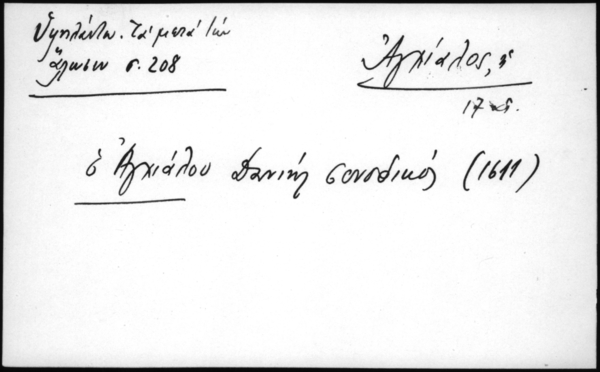 Ὑψηλάντου. Τὰ μετὰ τὴν
ἅλωσιν σ. 208
Ἀγχίαλος, ἡ
17 αἰ.
ὁ Ἀγχιάλου Δανιὴλ συνοδικός (1611)